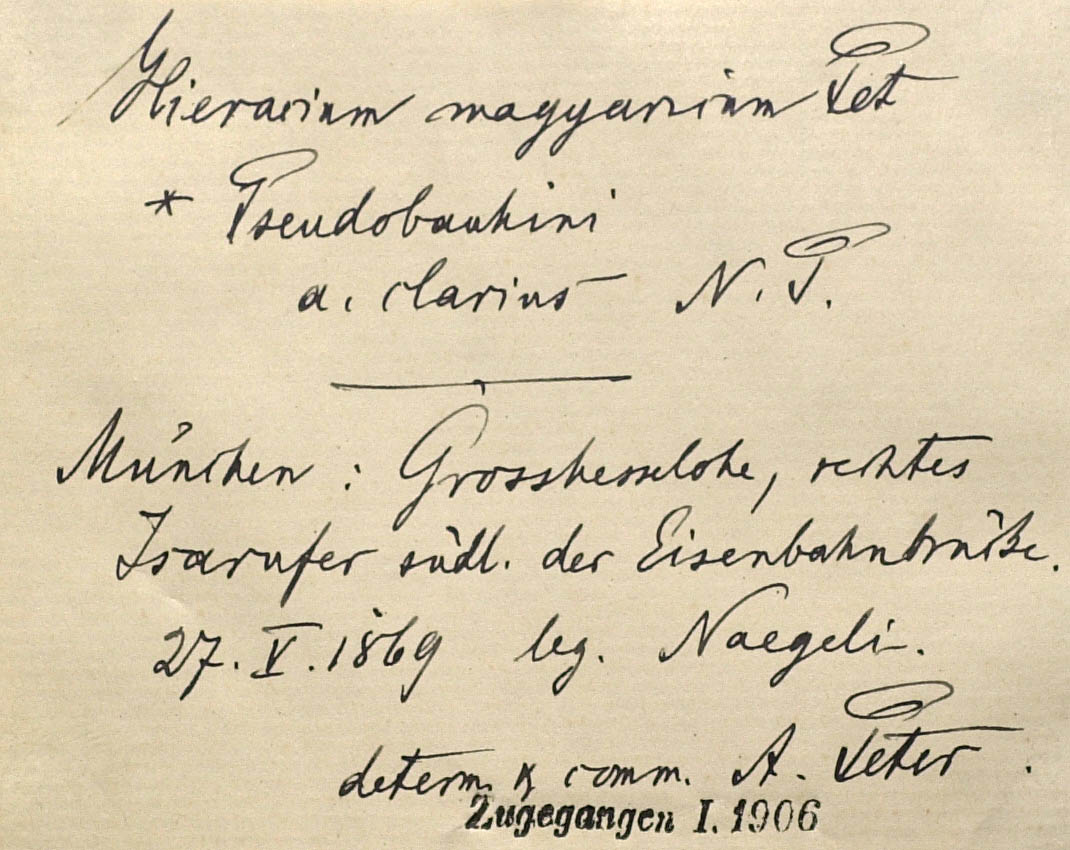 Hieracium magyaricum Pet
* Pseudobauhini
a. clarius N. P.
München : Grosshesselohe, rechtes
Isarufer südl. der Eisenbahnbrücke.
27. V. 1869 leg. Naegeli.
determ. & comm. A. Peter.
Zugegangen I. 1906